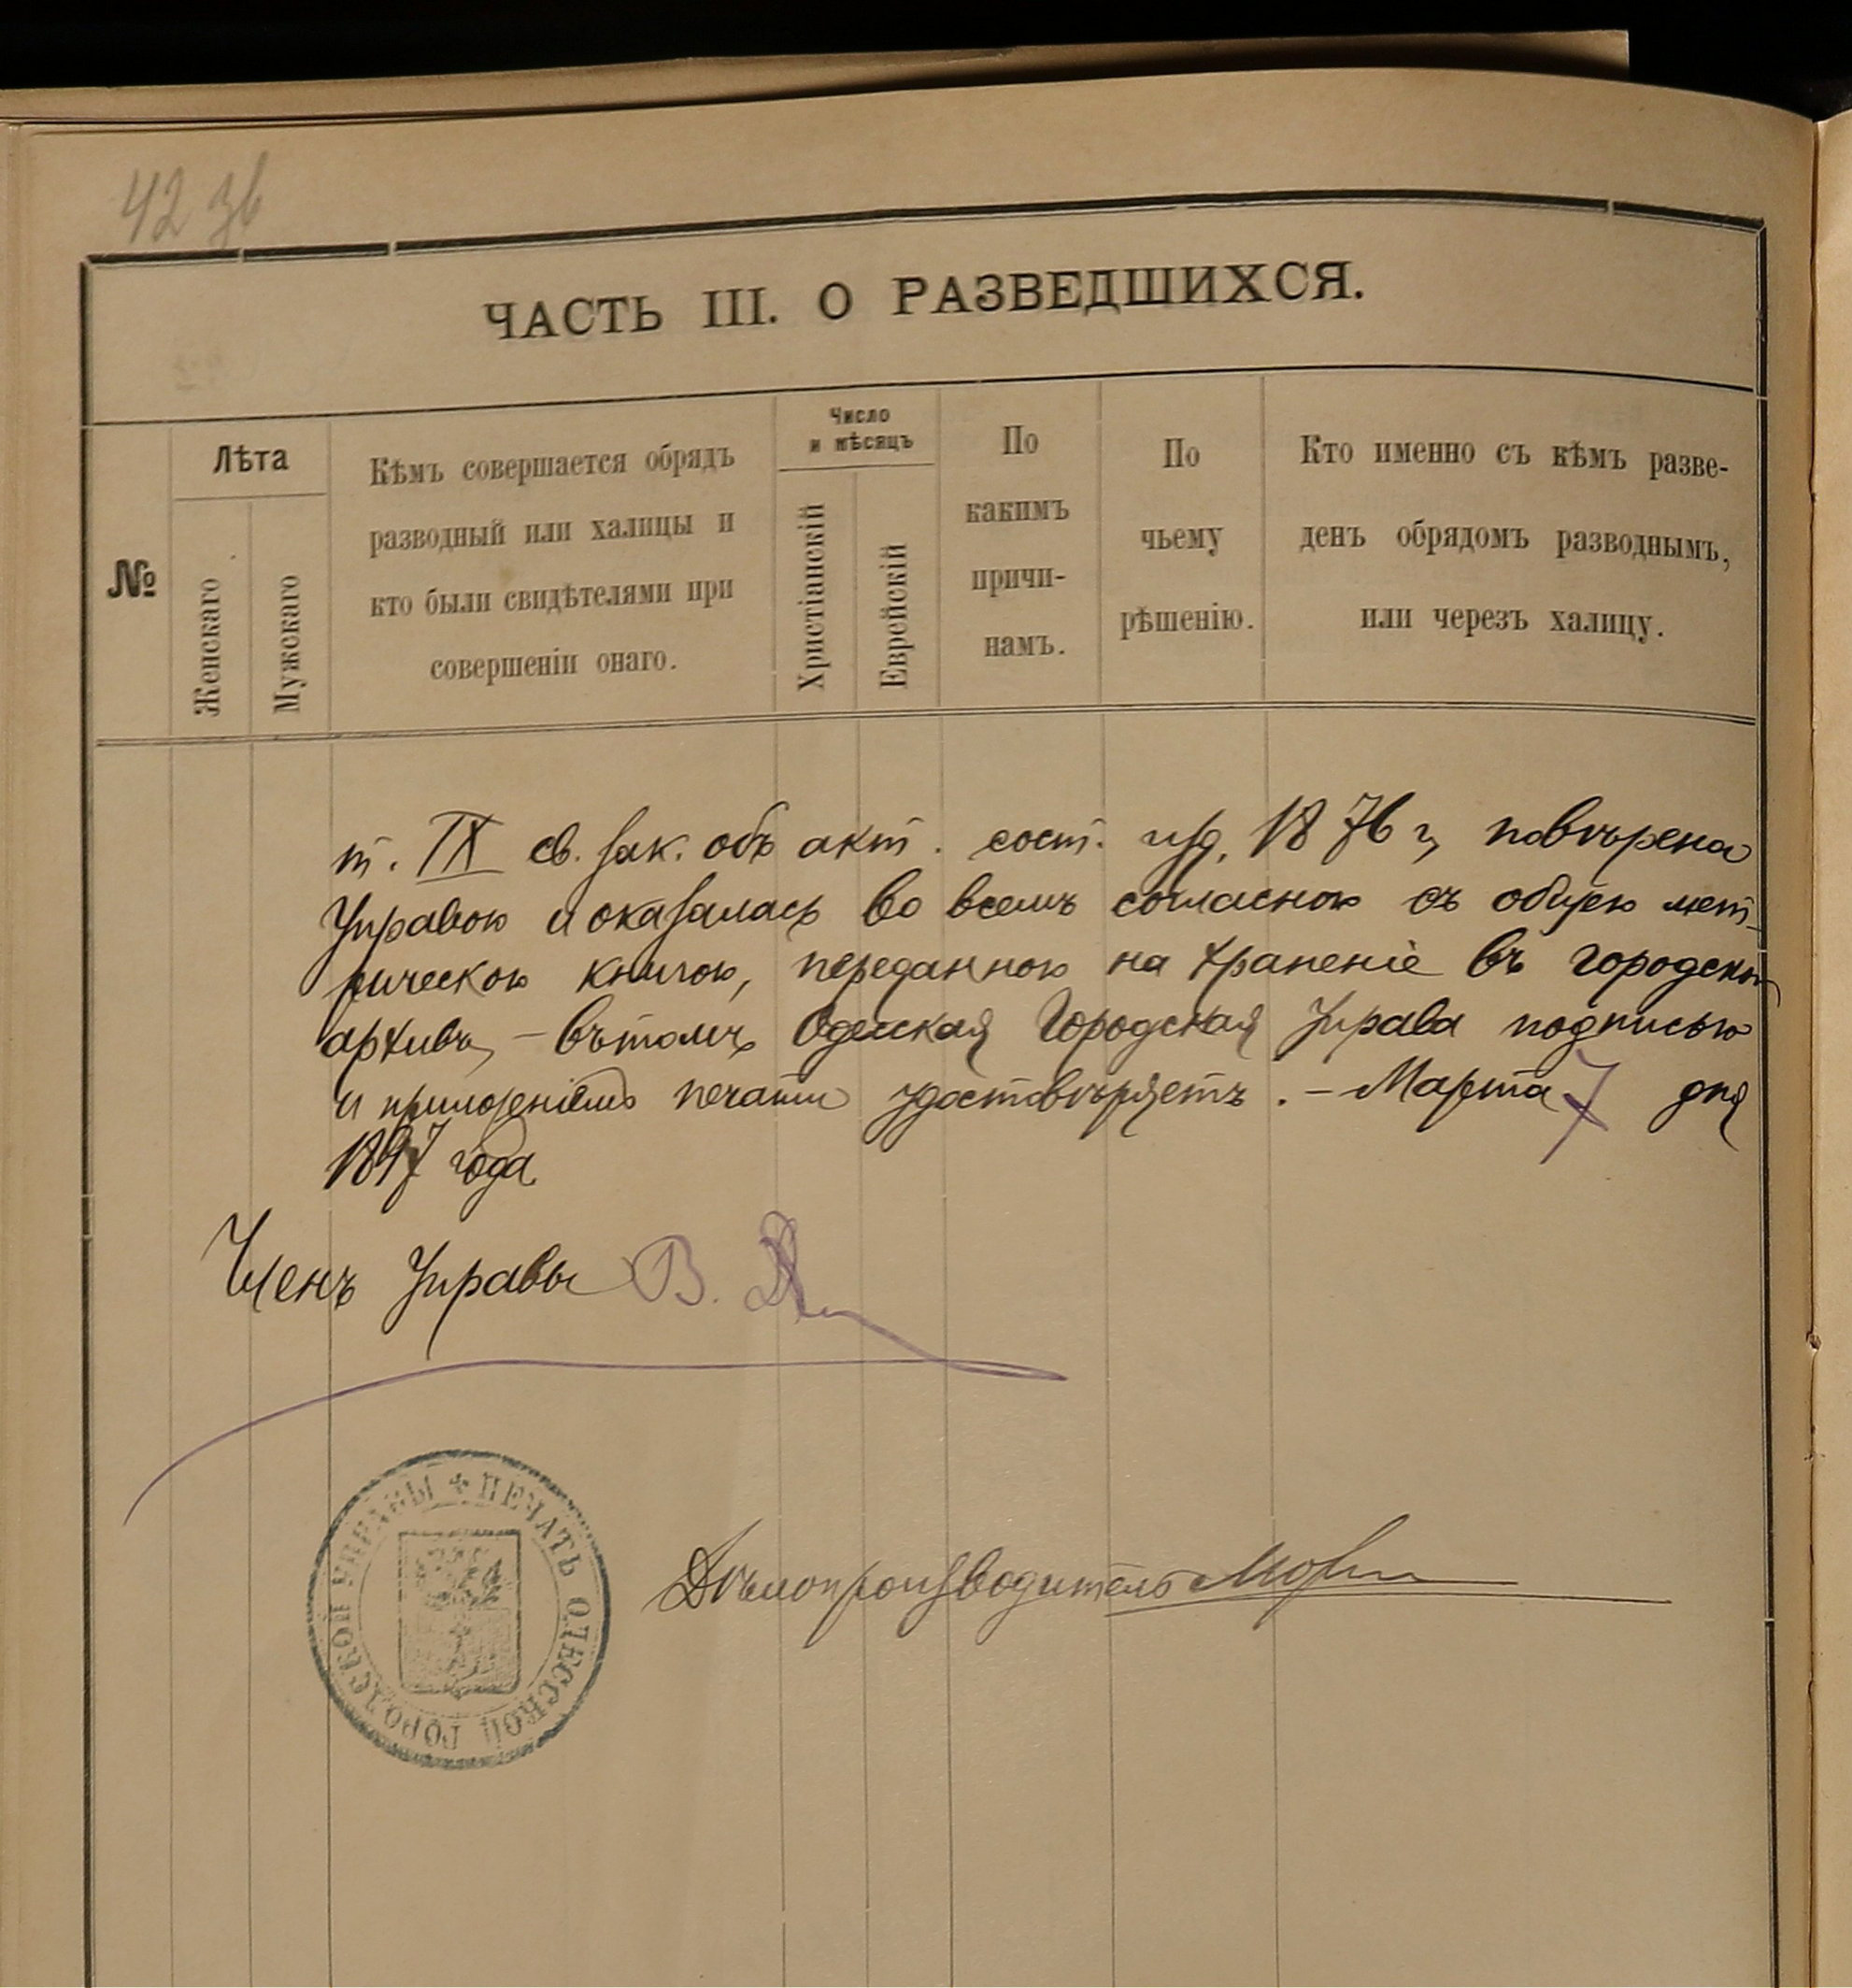 42 зв
ЧАСТЬ III. О РАЗВЕДШИХСЯ.
№
Лѣта
Женскаго
Мужскаго
Кѣмъ совершается обрядъ
разводный или халицы и
кто были свидѣтелями при
совершеніи онаго.
Число
и мѣсяцъ
Христіанскій
Еврейскій
По
какимъ
причи-
намъ.
По
чьему
рѣшенію.
Кто именно съ кѣмъ разве-
денъ обрядомъ разводнымъ,
или черезъ халицу.
т. IX св. зак. объ акт. сост. изд. 1876 г, повѣрена
Управою и оказалась во всемъ согласною съ общею мет-
рическою книгою, переданною на храненіе въ городской
архивъ, – въ томъ Одесская Городская Управа подписью
и приложеніемъ печати удостовѣряетъ. – Марта 7 дня
1897 года
Членъ Управы В.
ПЕЧАТЬ ОДЕССКОЙ ГОРОДСКОЙ УПРАВЫ
Дѣлопроизводитель